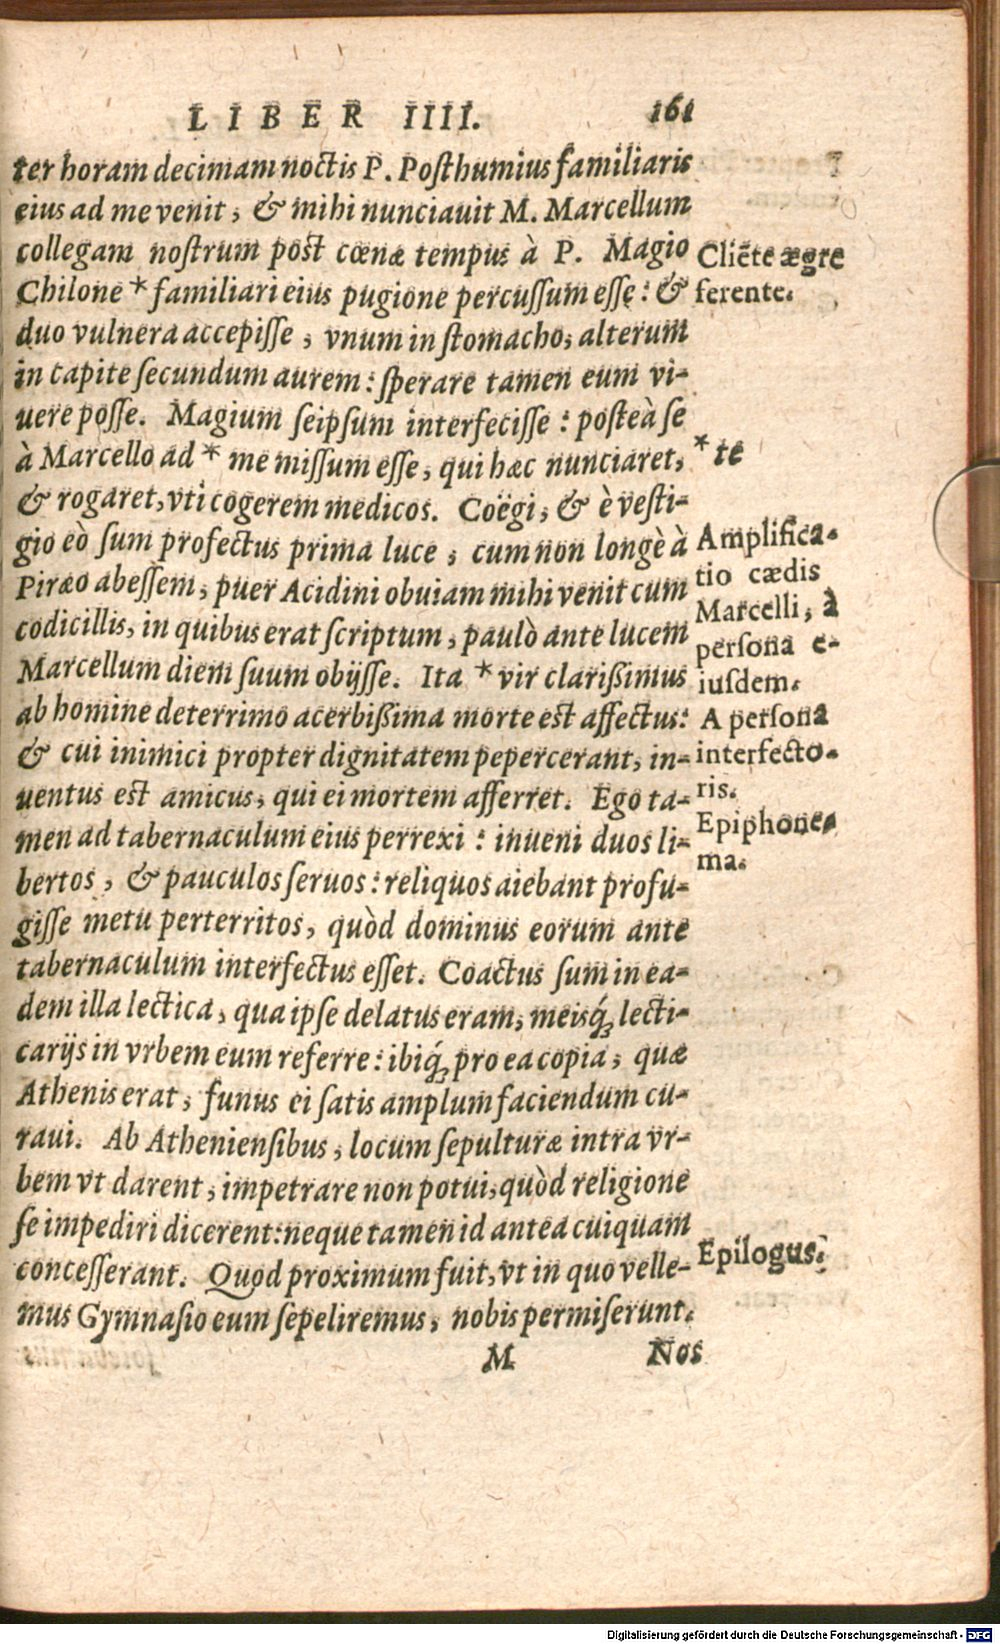 LIBER IIII. 161
ter horam decimam noctis P. Posthumius familiaris
eius ad me venit, & mihi nunciauit M. Marcellum
collegam nostrum post cœnæ tempus à P. Magio
Chilone * familiari eius pugione percussum esse: &
duo vulnera accepisse, vnum in stomacho, alterum
in capite secundum aurem: sperare tamen eum vi-
uere posse. Magium seipsum interfecisse: posteà se
à Marcello ad * me missum esse, qui hæc nunciaret,
& rogaret, vti cogerem medicos. Coëgi, & è vesti-
gio eò sum profectus prima luce, cum non longè à
Piræo abessem, puer Acidini obuiam mihi venit cum
codicillis, in quibus erat scriptum, paulò ante lucem
Marcellum diem suum obijsse. Ita * vir clarißimus
ab homine deterrimo acerbißima morte est affectus:
& cui inimici propter dignitatem pepercerant, in-
uentus est amicus, qui ei mortem afferret. Ego ta-
men ad tabernaculum eius perrexi: inueni duos li-
bertos, & pauculos seruos: reliquos aiebant profu-
gisse metu perterritos, quòd dominus eorum ante
tabernaculum interfectus esset. Coactus sum in ea-
dem illa lectica, qua ipse delatus eram, meisq́; lecti-
carijs in vrbem eum referre: ibiq́; pro ea copia, quæ
Athenis erat, funus ei satis amplum faciendum cu-
raui. Ab Atheniensibus, locum sepulturæ intra vr-
bem vt darent, impetrare non potui, quòd religione
se impediri dicerent: neque tamen id antea cuiquam
concesserant. Quod proximum fuit, vt in quo velle-
mus Gymnasio eum sepeliremus, nobis permiserunt.
M Nos
Cliẽte ægre
ferente.
* te
Amplifica-
tio cædis
Marcelli, à
persona e-
iusdem.
A persona
interfecto-
ris.
Epiphone-
ma.
Epilogus.
Digitalisierung gefördert durch die Deutsche Forschungsgemeinschaft - DFG